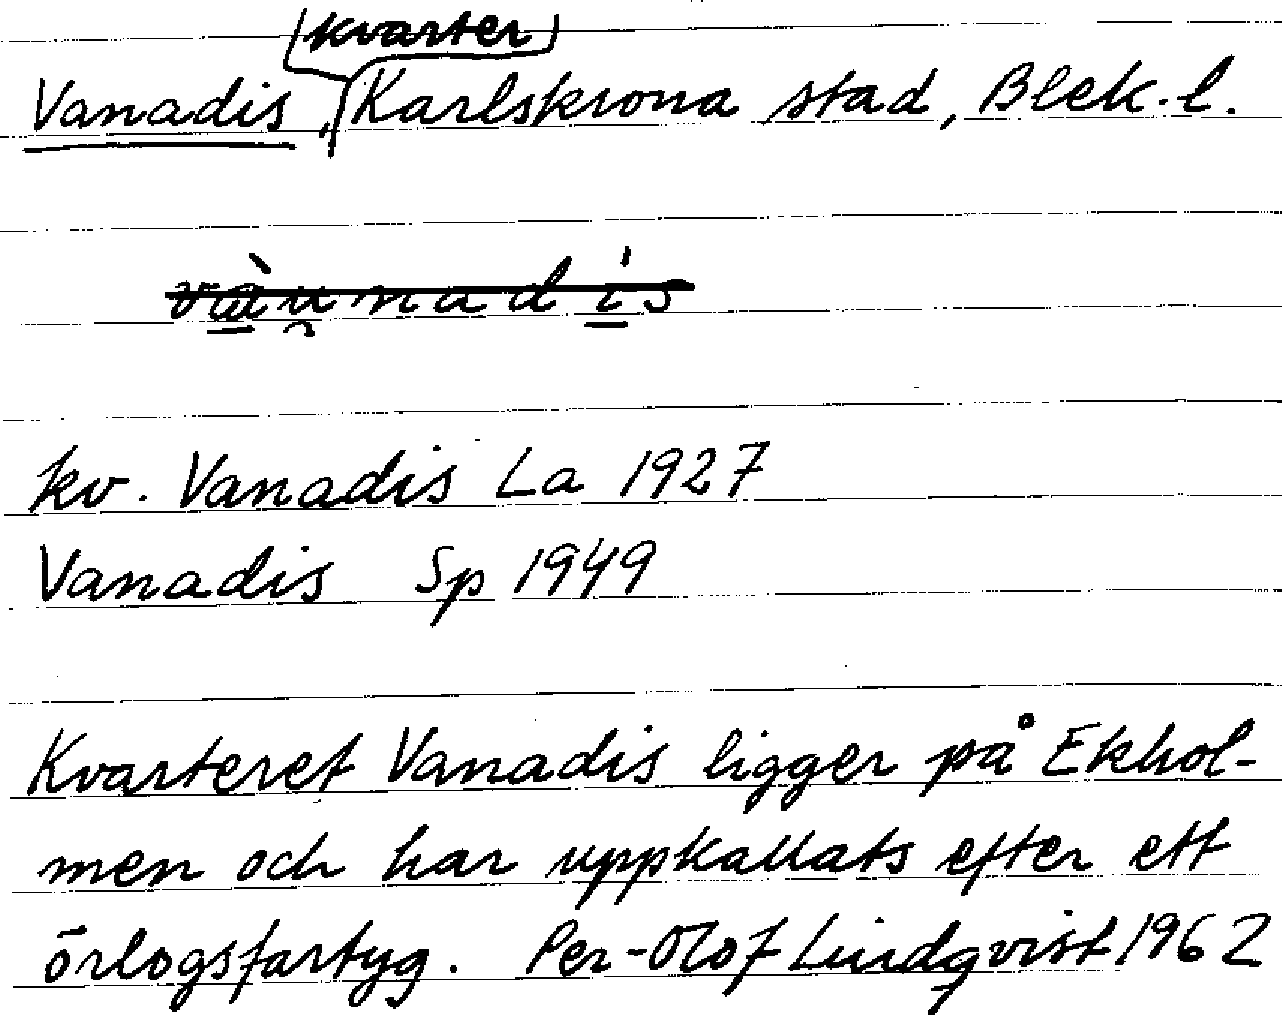 kvarter
Vanadis, Karlskrona stad, Blek. l.
kv. Vanadis La 1927
Vanadis Sp 1949
Kvarteret Vanadis ligger på Ekhol-
men och har uppkallats efter ett
örlogsfartyg. Per-Olof Lindqvist 1962